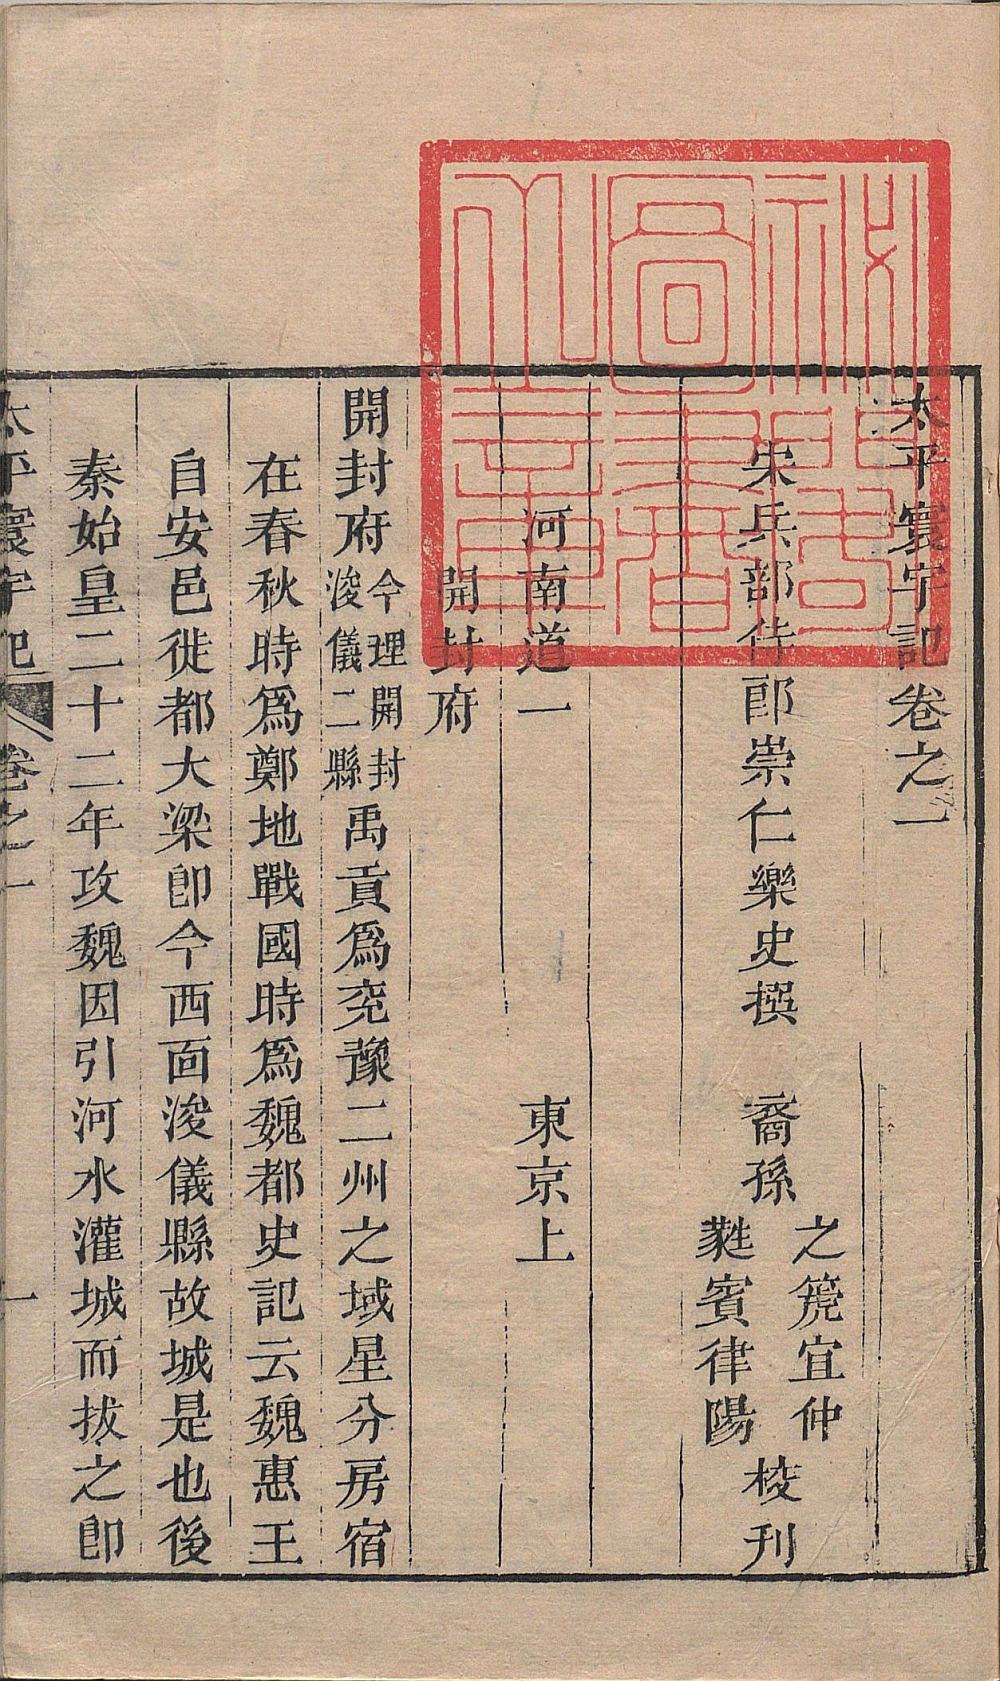 太平寰宇記卷之一
宋兵部侍郎崇仁樂史撰　裔孫
之篪宜仲
蕤賓律陽
校刊
河南道一　東京上
開封府
開封府
今理開封
浚儀二縣
禹貢爲兖豫二州之域星分房宿
在春秋時爲鄭地戰國時爲魏都史記云魏惠王
自安邑徙都大梁卽今西面浚儀縣故城是也後
秦始皇二十二年攻魏因引河水灌城而拔之卽
太平寰宇記　卷之一　一